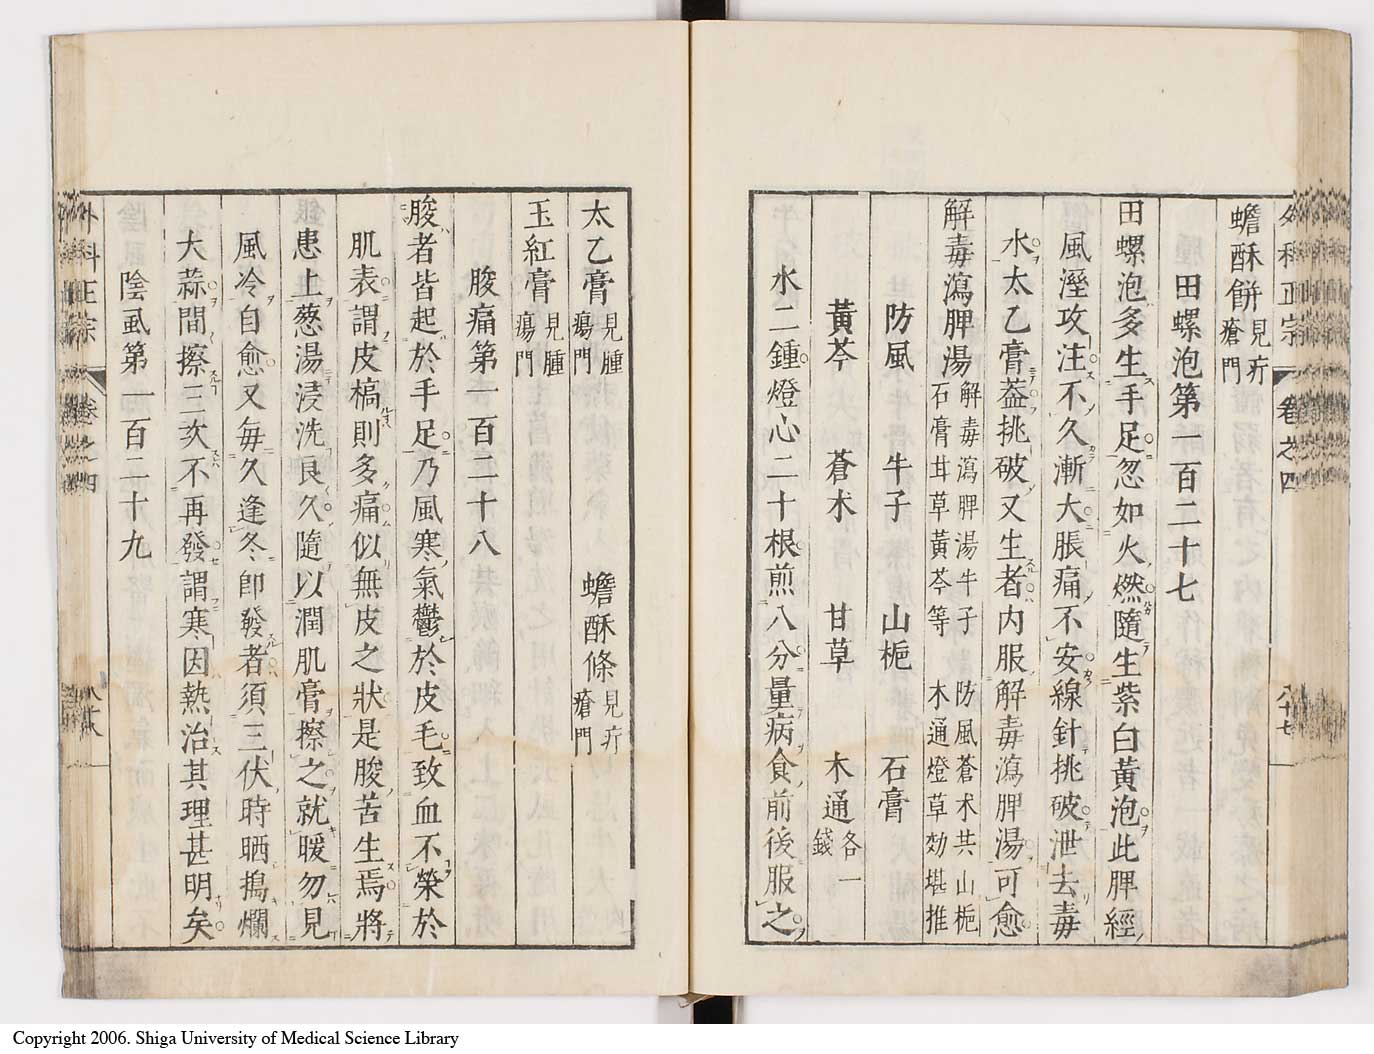 外科正宗 卷之四 八十七
蟾酥餅見疔瘡門
田螺泡第一百二十七
田螺泡多生手足忽如火燃隨生紫白黃泡此脾經
風溼攻注不久漸大脹痛不安線針挑破泄去毒
水太乙膏葢挑破又生者內服解毒瀉脾湯可愈
解毒瀉脾湯 解毒瀉脾湯牛子 防風蒼朮共山梔 石膏甘草黃芩等 木通燈草効堪推
防風 牛子 山梔 石膏
黃芩 蒼朮 甘草 木通各一錢
水二鍾燈心二十根煎八分量病食前後服之
太乙膏見腫瘍門 蟾酥條見疔瘡門
玉紅膏見腫瘍門
朘痛第一百二十八
朘者皆起於手足乃風寒氣鬱於皮毛致血不榮於
肌表謂皮槁則多痛似無皮之狀是朘苦生焉將
患上葱湯浸洗良久隨以潤肌膏擦之就暖勿見
風冷自愈又毎久逢冬卽發者須三伏時晒搗爛
大蒜間擦三次不再發謂寒因熱治其理甚明矣
陰虱第一百二十九
外科正宗 卷之四
Copyright 2006. Shiga University of Medical Science Library